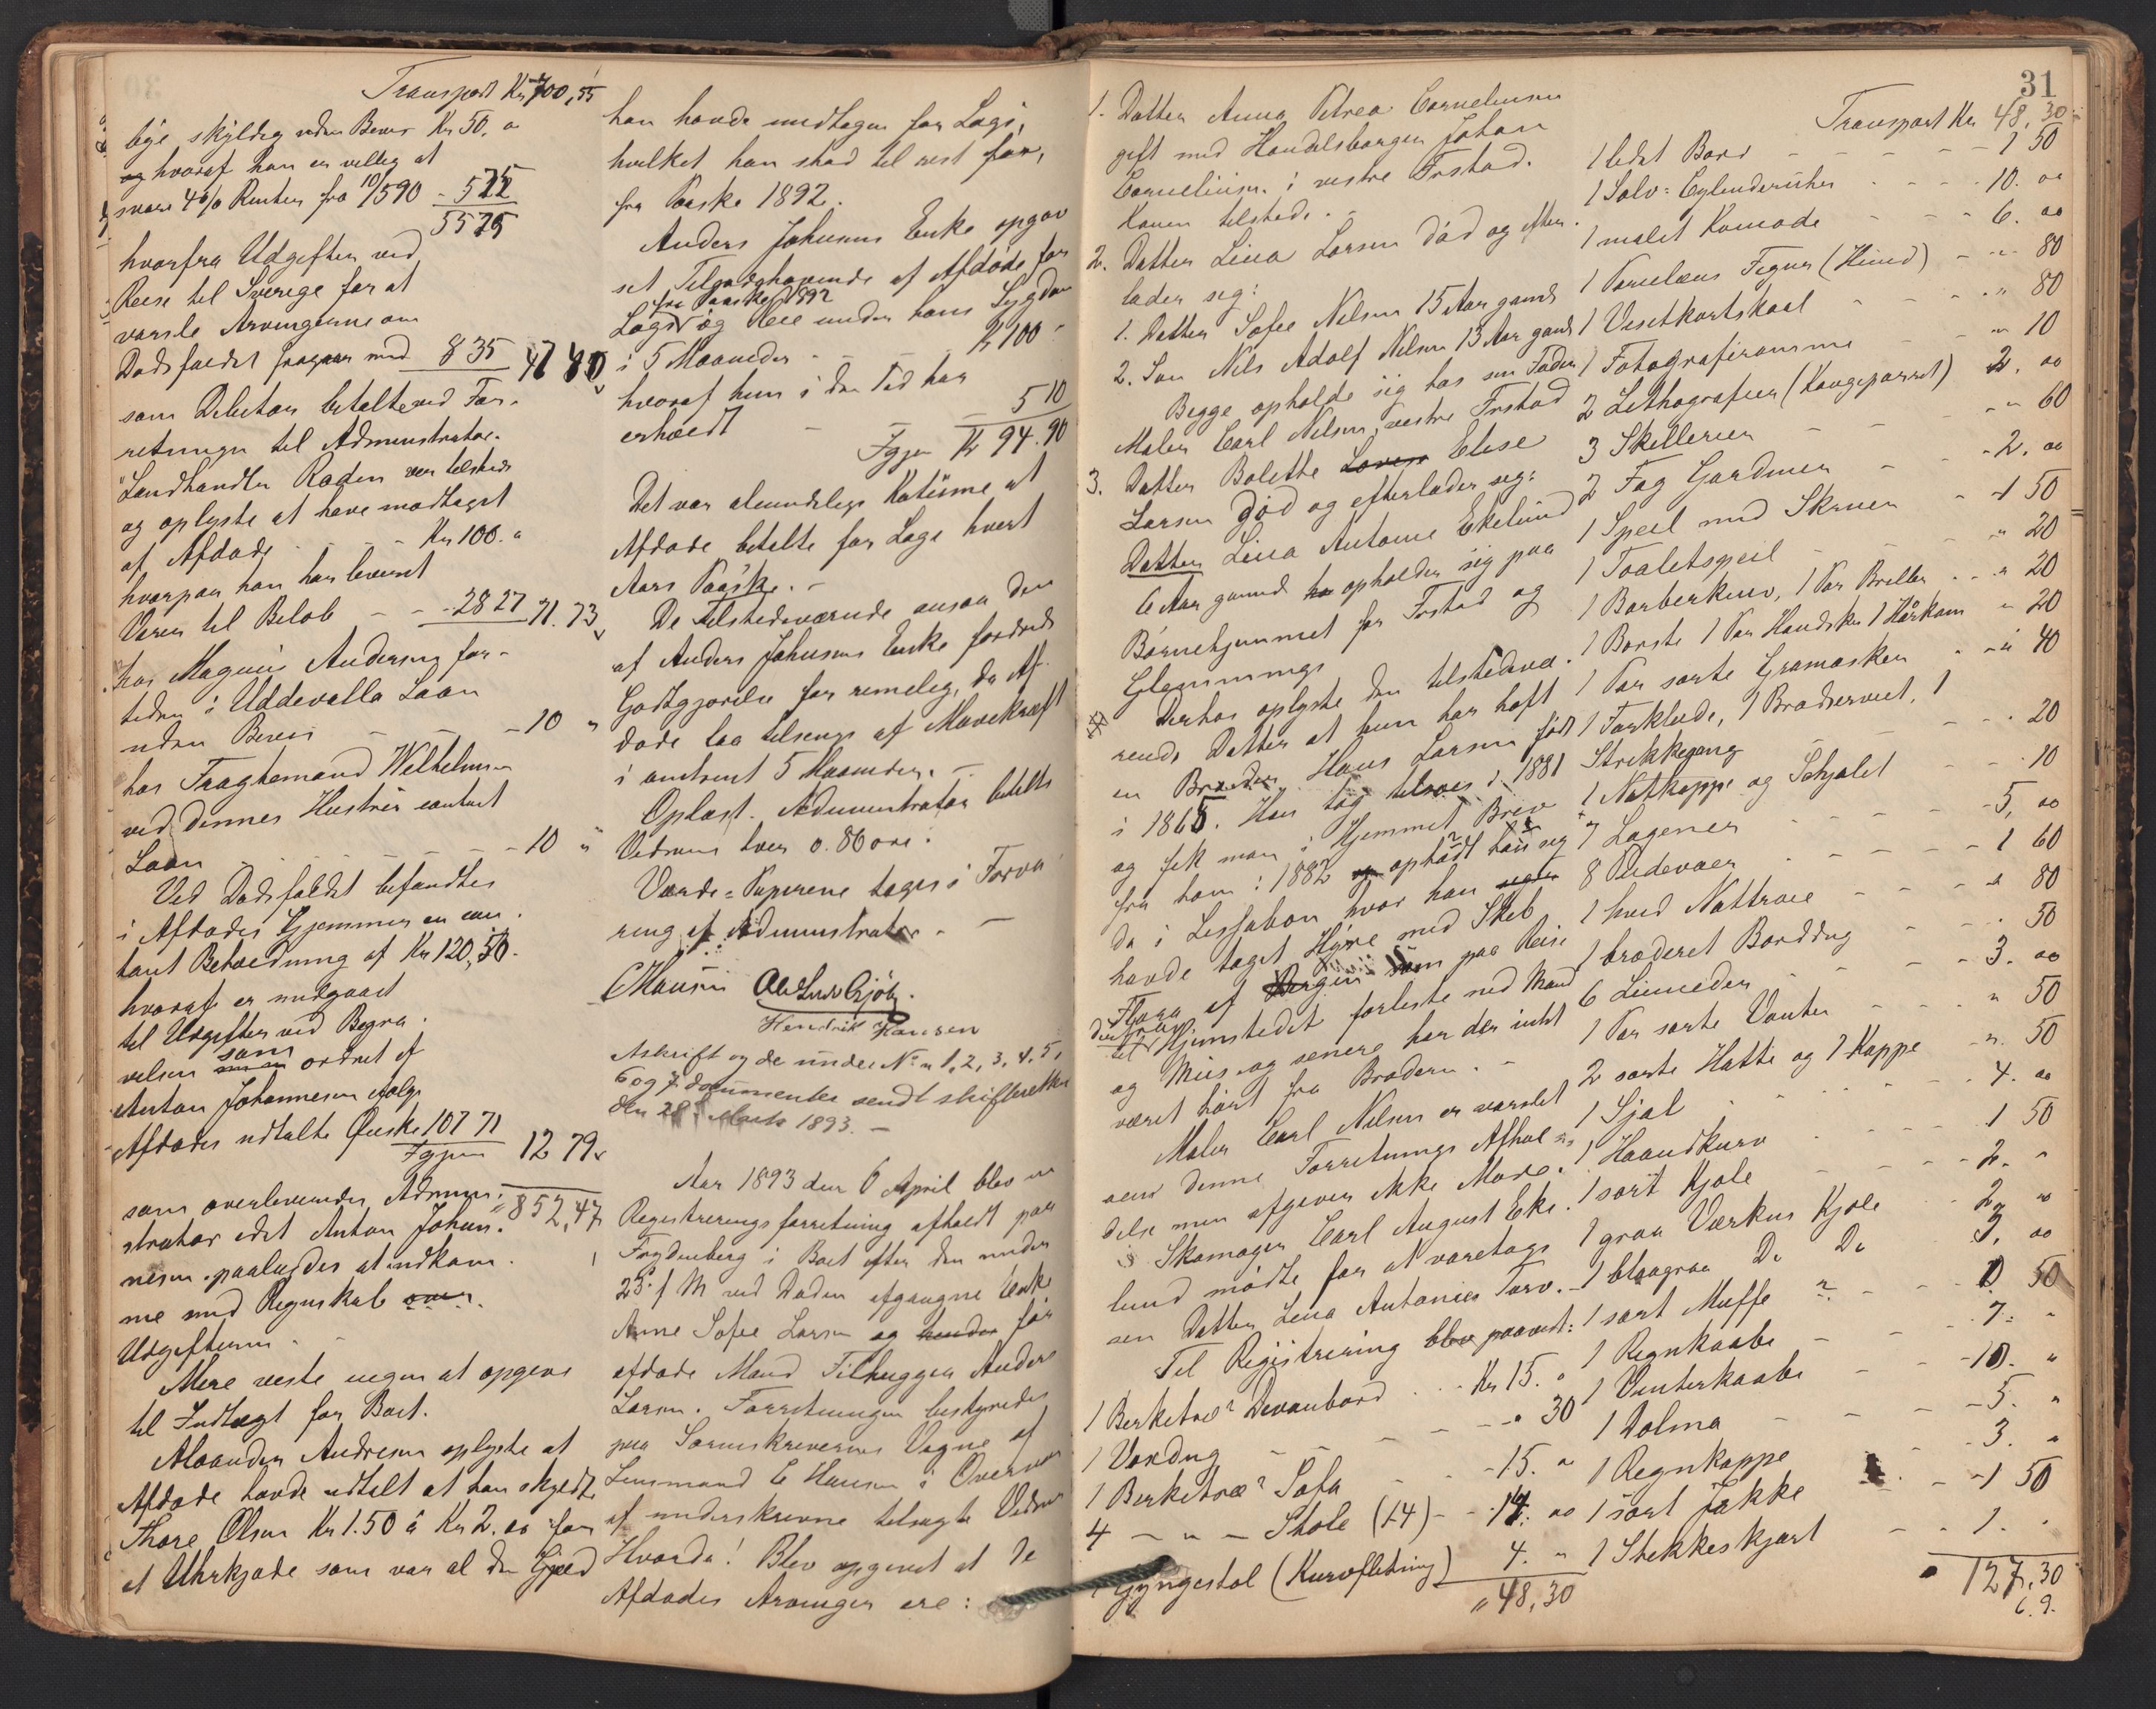 Transport Kr 700,55
lige skyldig uden Bevis Kr 50. "
og hvoraf han er villig at
svare 4% Renter fra 10/5 90 - 5 75
55 75
hvorfra Udgifter ved
Reise til Sverige for at
varsle Arvingerne om
Dødsfaldet fragaar med 8 35 47 40
som Debitor betalte ved For-
retningen til Administrator.
Landhandler Roden var tilstede
og oplyste at have modtaget
af Afdøde - - - Kr 100. "
hvorpaa han har leveret
Varer til Beløb - - 28 27 71.73
hos Magnus Andersen for-
tiden i Uddevalla Laan
uden Bevis - - - 10 "
hos Fragtemand Wilhelmsen
ved dennes Hustru contant
Laan - - - - 10 "
Ved Dødsfaldet befandtes
i Afdødes Gjemmer en con-
tant Beholdning af Kr 120,50.
hvoraf er medgaaet
til Udgifter ved Begra-
velsen som ordnet af
Anton Johannesen ifølge
Afdødes udtalte Ønske 107 71
Igjen 12 79
som overleveredes Admini-
strator idet Anton Johan- " 852,47
nesen paalagdes at indkom-
me med Regnskab over
Udgifterne.
Mere vidste ingen at opgive
til Indtægt for Boet.
Andresen oplyste at
Afdøde havde udtalt at han skyldte
Thore Olsen Kr 1.50 á Kr 2.00 for
et Uhrkjøb som var al den Gjæld
han havde modtagen for Logi,
hvilket han stod til rest for,
fra Paaske 1892.
Anders Johnsens Enke opgav
sit Tilgodehavende af Afdøde for
fra Paaske 1892
Logi og Pleie under hans Sygdom
i 5 Maaneder - - - Kr 100 -
hvoraf hun i den Tid har
erholdt - - - 5 10
Igjen Kr 94.90
Det var almindelige Kutüme at
Afdøde betalte for Logi hvert
Aars Paaske. -
De Tilstedeværende ansaa den
af Anders Johnsens Enke fordrede
Godtgjørelse for rimelig, da Af-
døde laa tilsengs af Mavekræft
i omtrent 5 Maaneder. -
Oplæst. Administrator betalte
Vidnerne hver 0.80 øre.
Værdi-Papirerne toges i Forva-
ring af Administrator. -
C Hansen Ole Ludv Gjöby.
Hendrik Hansen
Afskrift og de under No 1, 2, 3, 4, 5,
6 og 7 documenter sendt skifteretten
den 28 Marts 1893. -
Aar 1893 den 6 April blev en
Registreringsforretning afholdt paa
Frydenberg i Boet efter den under
23 f M ved Døden afgangne Enke
Anne Sofie Larsen og hendes før
afdøde Mand Filhugger Anders
Larsen. Forretningen bestyredes
paa Sorenskriverens Vegne af
Lensmand C Hansen i Overvær
af underskrevne tilsagte Vidner
Hvorda! Blev opgivet at de
Afdødes Arvinger ere:
31
1. Datter Anna Petrea Corneliusen
gift med Handelsborger Johan
Corneliusen i vestre Frstad.
Konen tilstede. -
2. Datter Lina Larsen død og efter-
lader sig:
1. Datter Sofie Nilsen 15 Aar gaml
2. Søn Nils Adolf Nilsen 13 Aar gaml
Begge opholde sig hos sin Fader
Maler Carl Nilsen, vestre Frstad
3. Datter Bolette Lovise Elise
Larsen død og efterlader sig:
Datter Lina Antonie Ekelund
6 Aar gammel opholder sig paa
Børnehjemmet for Frstad og
Glemminge
Derhos oplyste den tilstedevæ-
rende Datter at hun har haft
en Broder Hans Larsen født
i 1865. Han tog tilsøes i 1881
og fik man i Hjemmet Brev
fra ham i 1882 opholdt han sig
da i Lissabon hvor han
havde taget Hyre med Skib
Flora af Bergen som paa Reise
derfra
til Hjemstedet forliste med Mand
og Mus og senere har der intet
været hørt fra Broderen. -
Maler Carl Nilsen er varslet
om denne Forretnings Afhol-
delse men afgiver ikke Møde.
Skomager Carl August Eke-
lund mødte for at varetage
sin Datter Lina Antonies Tarv. -
Til Registrering blev paavist:
1 Berketræs Divanbord - - Kr 15. "
1 Voxdug - - - - " 30
1 Berketræs Sofa - - - 15. "
4 - " - Stole (1.4) - - 14. 00
1 Gyngestol (Kurvfletning) 4. "
" 48,30
Transport Kr 48,30
1 lidet Bord - - - - 1 50
1 Sølv-Cylenderuhr - - - 10. 00
1 malet Komode - - - 6. 00
1 Porcelæns Figur (Hund) - " 80
1 Visitkortskaal - - - " 80
1 Fotografiramme - - " 10
2 Lithografier (Kongeparret) 2. 00
3 Skillerier - - - " 60
2 Fag Gardiner - - - 2. 00
1 Speil med Skruer - - 1 50
1 Toaletspeil - - - " 20
1 Barberkniv, 1 Par Briller - " 20
1 Børste 1 Par Handsker 1 Hårkam " 20
1 Par sorte Gramasker - - " 40
1 Forklæde, 1 Broderveit, 1
Strikkegang - - - - 20
1 Natkappe og Sthjalet - - - 10
7 Lagener - - - - 5, 00
8 Pudevaer - - - - 1 60
1 hvid Nattrøie - - - " 80
1 broderet Borddug - - - 50
6 Linneder - - - - 3. 00
1 Par sorte Vanter - - - " 50
2 sorte Hatte og 1 Kappe - " 50
1 Sjal - - - - 4. 00
1 Haandkurv - - - 1 50
1 sort Kjole - - - - 2. "
1 graa Værkens Kjole - - 2. "
1 blaagraa Do Do 3. 00
1 sort Muffe - - - 0 50
1 Regnkaabe - - - 7. "
1 Vinterkaabe - - - 10. "
1 Dolma - - - - 5. "
1 Regnkappe - - - 3. "
1 sort Jakke - - - 1 50
1 Stekkeskjørt - - - 1. "
" 127,30